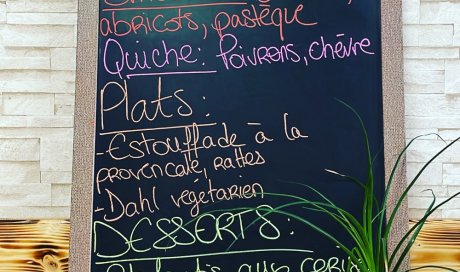 abricots, pastèque
Quiche: Poivrons, chèvre
Plats:
- Estouffade à la
provencale, rattes
- Dahl végétarien
DESSERTS:
aux